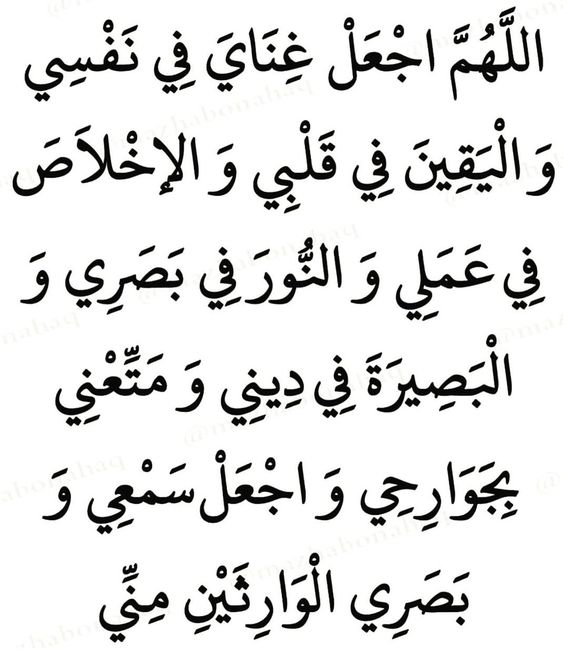 اللَّهُمَّ اجْعَلْ غِنَايَ فِي نَفْسِي
وَ الْيَقِينَ فِي قَلْبِي وَ الإِخْلاَصَ
فِي عَمَلِي وَ النُّورَ فِي بَصَرِي وَ
الْبَصِيرَةَ فِي دِينِي وَ مَتِّعْنِي
بِجَوَارِحِي وَ اجْعَلْ سَمْعِي وَ
بَصَرِي الْوَارِثَيْنِ مِنِّي